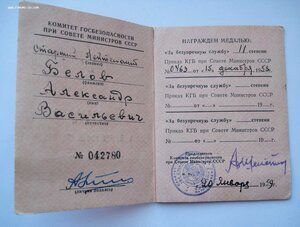 КОМИТЕТ ГОСБЕЗОПАСНОСТИ
ПРИ СОВЕТЕ МИНИСТРОВ СССР
старший лейтенант
Белов
Александр
Васильевич
№ 042780
НАГРАЖДЕН МЕДАЛЬЮ:
«За безупречную службу» II степени
Приказ КГБ при Совете Министров СССР
от «15» декабря 1958
«За безупречную службу» степени
Приказ КГБ при Совете Министров СССР
№ от « » 19 г.
«За безупречную службу» степени
Приказ КГБ при Совете Министров СССР
№ от « » 19 г.
Председатель
Комитета госбезопасности
при Совете Министров СССР
20 января 1959